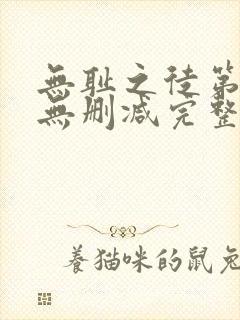 無耻之徒第
無删减完整
養猫咪的鼠兔